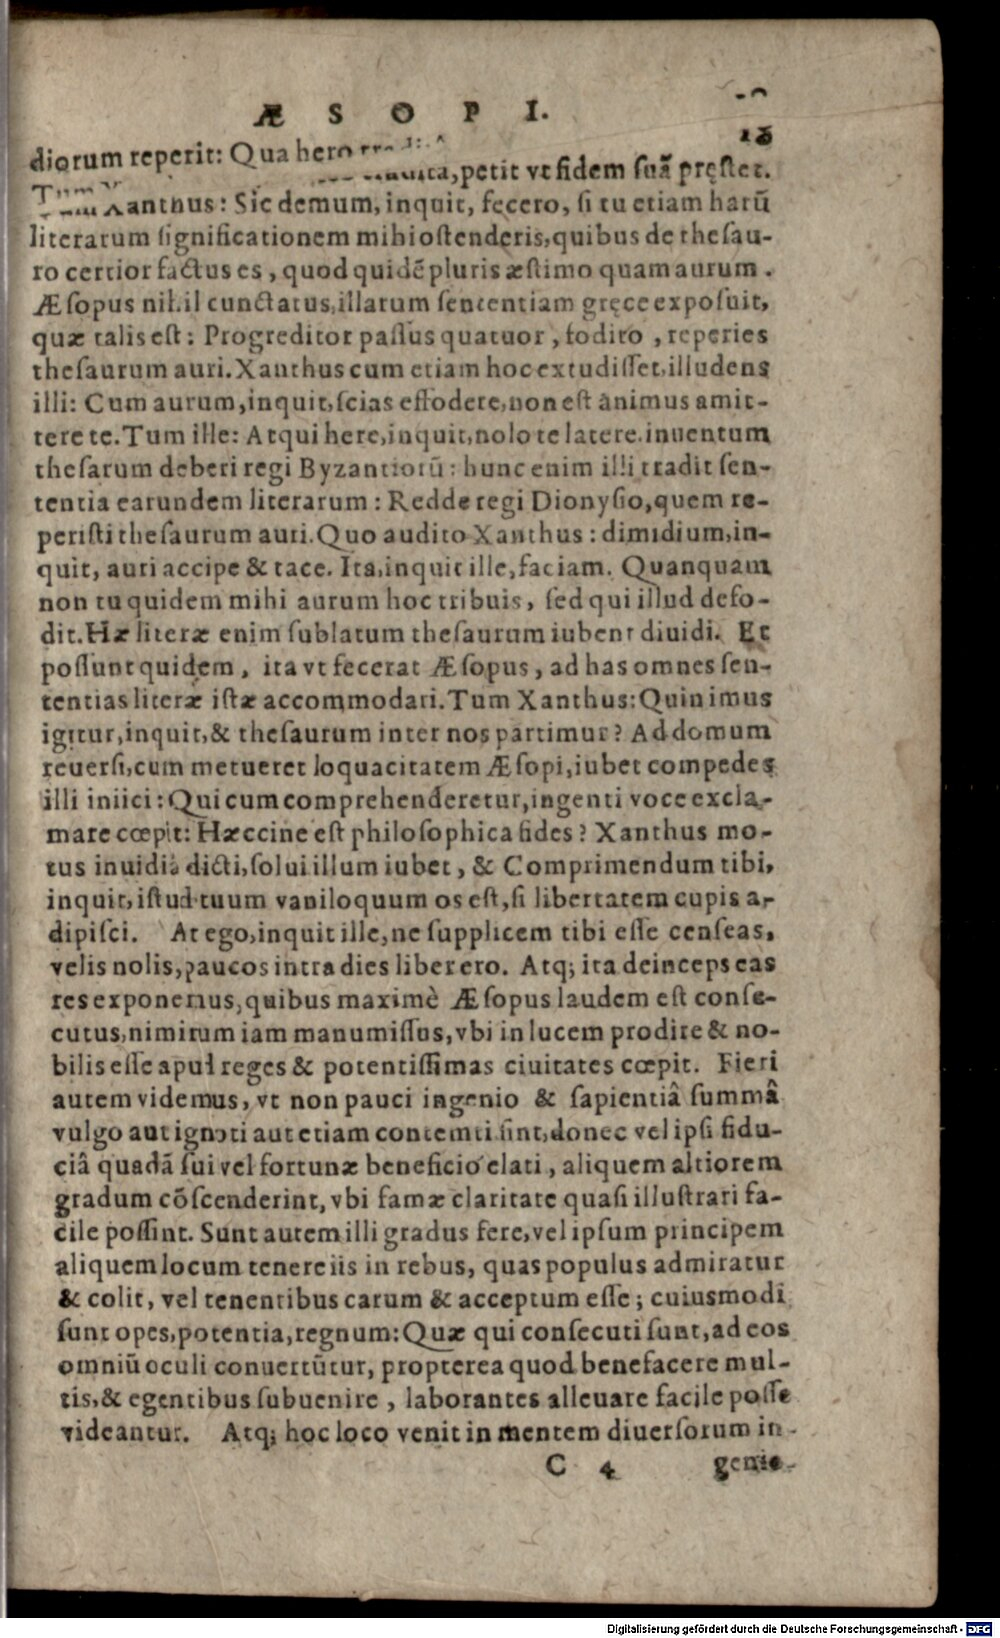 ÆSOPI.
diorum reperit: Qua hero
petit vt fidem suã pręstet.
Xanthus: Sic demum, inquit, fecero, si tu etiam harũ
literarum significationem mihi ostenderis, quibus de thesau-
ro certior factus es, quod quidẽ pluris æstimo quam aurum.
Æsopus nihil cunctatus, illarum sententiam gręce exposuit,
quæ talis est: Progreditor passus quatuor, fodito, reperies
thesaurum auri. Xanthus cum etiam hoc extudisset, illudens
illi: Cum aurum, inquit, scias effodere, non est animus amit-
tere te. Tum ille: Atqui here, inquit, nolo te latere. inuentum
thesarum deberi regi Byzantiorũ: hunc enim illi tradit sen-
tentia earundem literarum: Redde regi Dionysio, quem re-
peristi thesaurum auri. Quo audito Xanthus: dimidium, in-
quit, auri accipe & tace. Ita, inquit ille, faciam. Quanquam
non tu quidem mihi aurum hoc tribuis, sed qui illud defo-
dit. Hæ literæ enim sublatum thesaurum iubent diuidi. Et
possunt quidem, ita vt fecerat Æsopus, ad has omnes sen-
tentias literæ istæ accommodari. Tum Xanthus: Quin imus
igitur, inquit, & thesaurum inter nos partimur? Ad domum
reuersi, cum metueret loquacitatem Æsopi, iubet compedes
illi iniici: Qui cum comprehenderetur, ingenti voce excla-
mare cœpit: Hæccine est philosophica fides? Xanthus mo-
tus inuidiâ dicti, solui illum iubet, & Comprimendum tibi,
inquit, istud tuum vaniloquum os est, si libertatem cupis a-
dipisci. At ego, inquit ille, ne supplicem tibi esse censeas,
velis nolis, paucos intra dies liber ero. Atq; ita deinceps eas
res exponemus, quibus maximè Æsopus laudem est conse-
cutus, nimirum iam manumissus, vbi in lucem prodire & no-
bilis esse apud reges & potentissimas ciuitates cœpit. Fieri
autem videmus, vt non pauci ingenio & sapientiâ summâ
vulgo aut ignoti aut etiam contemti sint, donec vel ipsi fidu-
ciâ quadã sui vel fortunæ beneficio elati, aliquem altiorem
gradum cõscenderint, vbi famæ claritate quasi illustrari fa-
cile possint. Sunt autem illi gradus fere, vel ipsum principem
aliquem locum tenere iis in rebus, quas populus admiratur
& colit, vel tenentibus carum & acceptum esse; cuiusmodi
sunt opes, potentia, regnum: Quæ qui consecuti sunt, ad eos
omniũ oculi conuertũtur, propterea quod benefacere mul-
tis, & egentibus subuenire, laborantes alleuare facile posse
videantur. Atq; hoc loco venit in mentem diuersorum in-
C 4 genio-
Digitalisierung gefördert durch die Deutsche Forschungsgemeinschaft - DFG